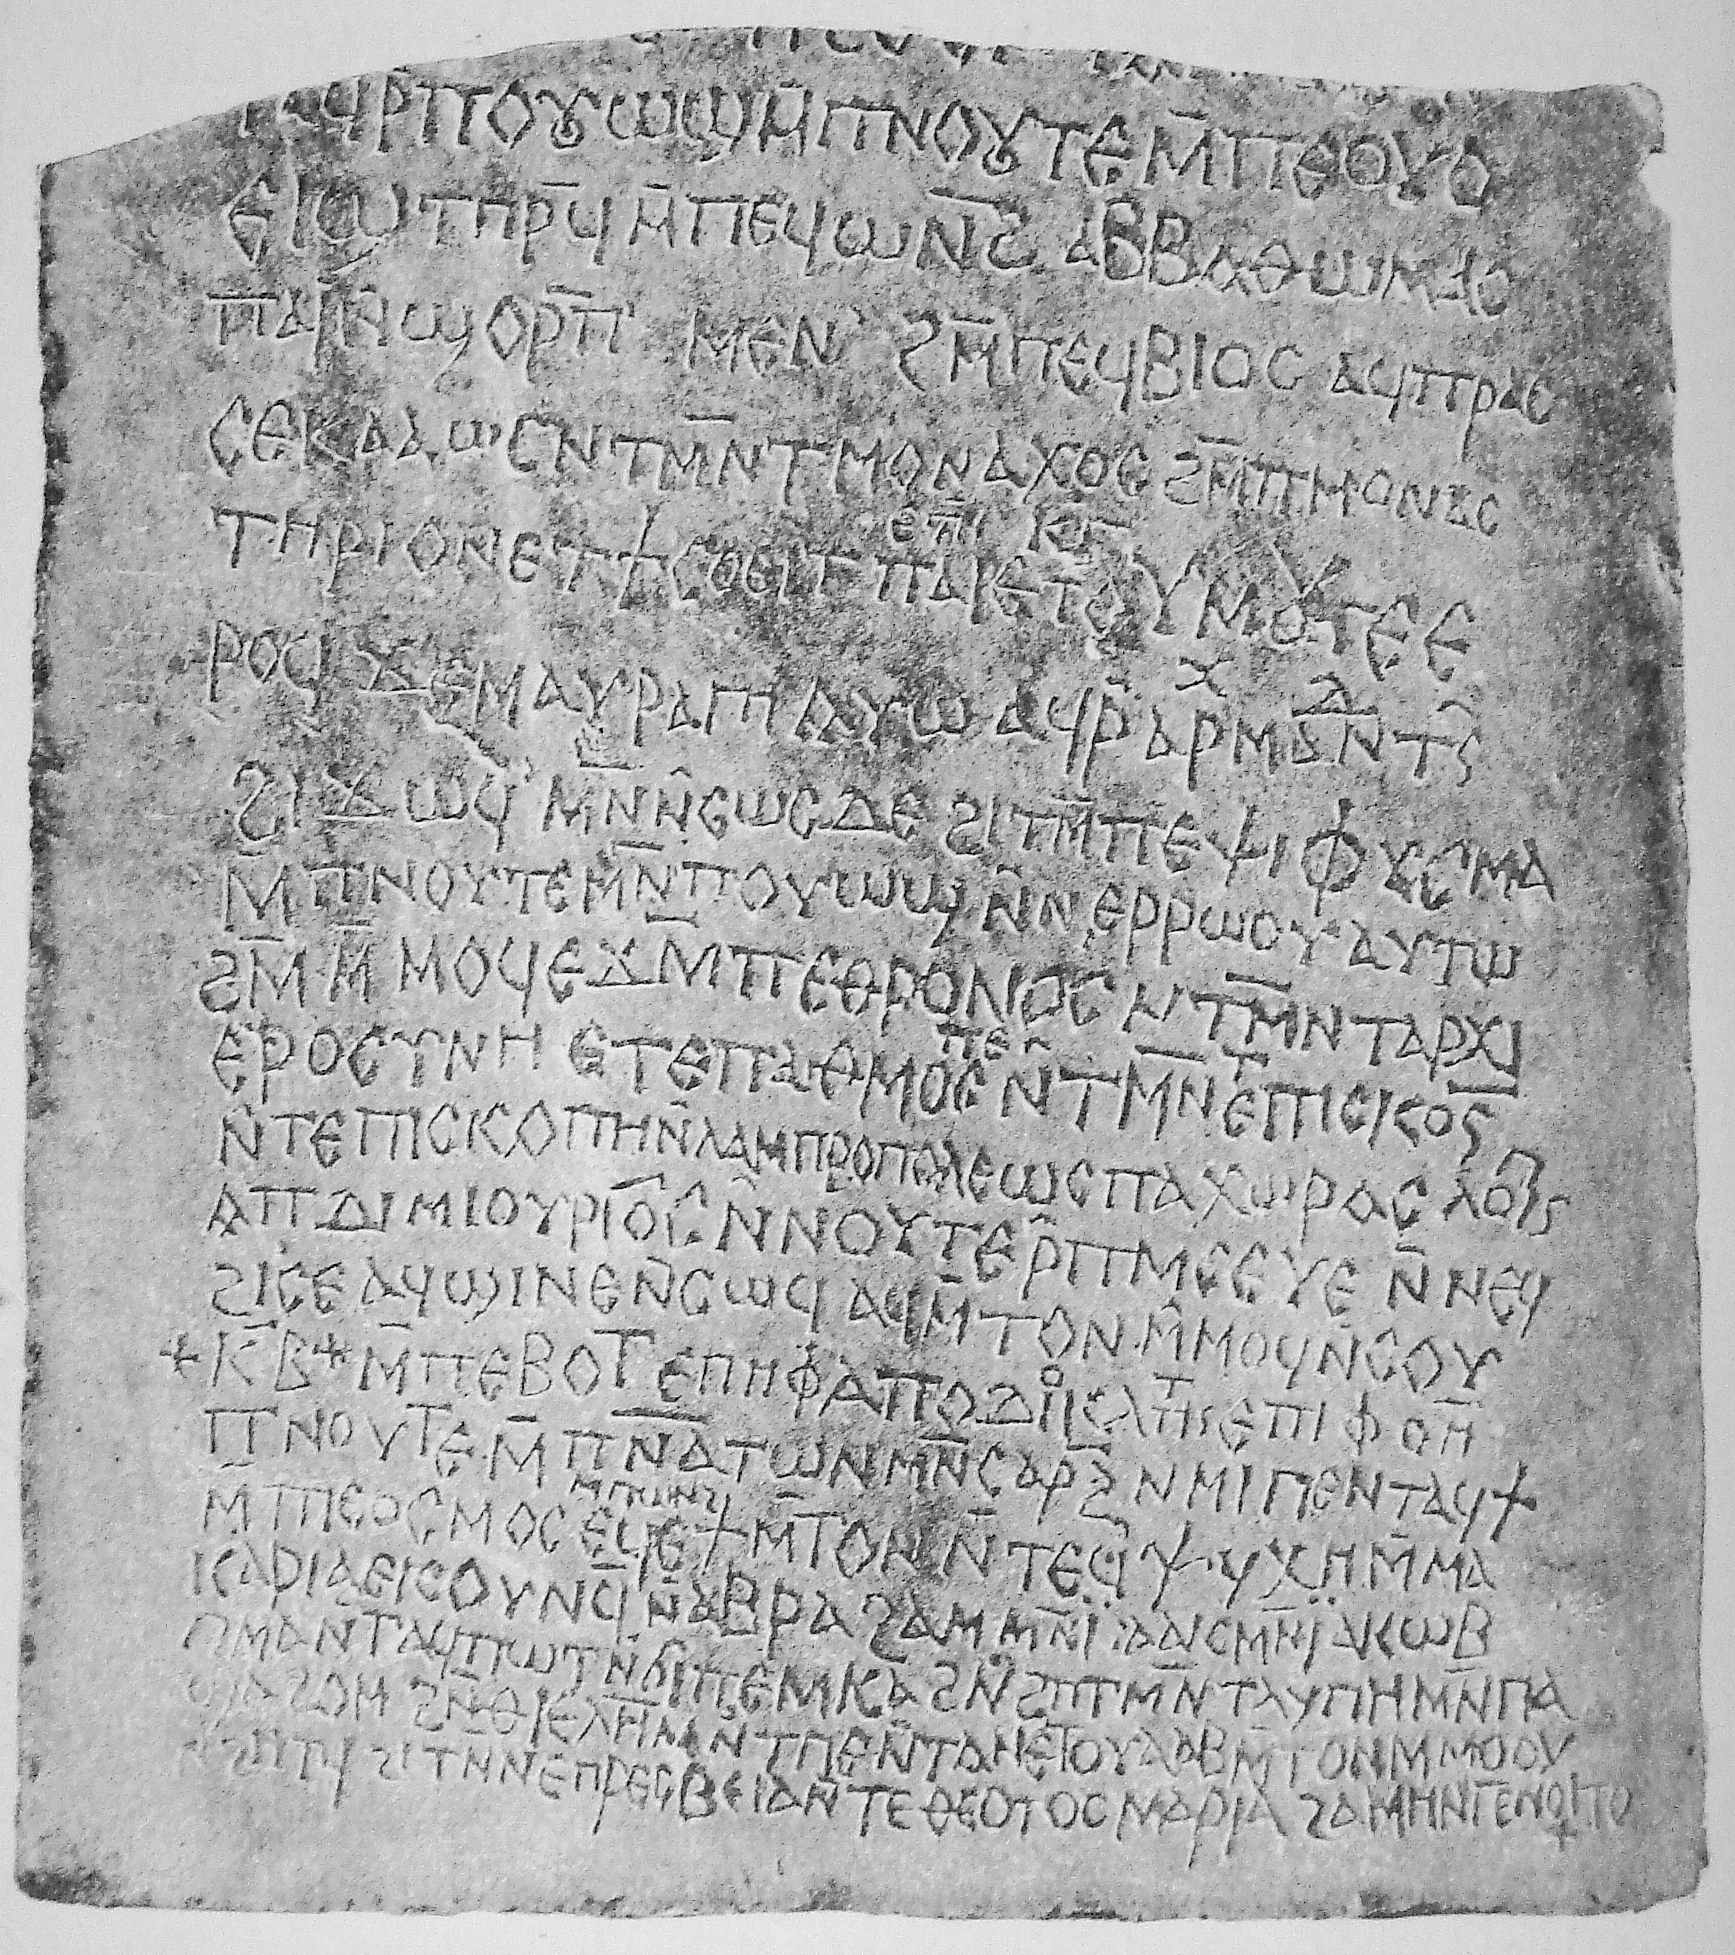 ⲁϥⲣ̄ⲡⲟⲩⲱϣ ⲙ̄ⲡⲛⲟⲩⲧⲉ ⲙ̄ⲡⲉⲟⲩⲟ
ⲉⲓϣ ⲧⲏⲣ̄ϥ ⲙ̄ⲡⲉϥⲱⲛ̄ϩ ⲁⲃⲃⲁ ⲑⲱⲙⲁⲥ
ⲡⲁⲓ̈ ⲛ̄ϣⲟⲣⲡ̄ ⲙⲉⲛ ϩⲙ̄ⲡⲉϥⲃⲓⲟⲥ ⲁϥⲡⲣⲁⲉ
ⲥⲉ ⲕⲁⲗⲱⲥ ⲛⲧⲙ̄ⲛⲧⲙⲟⲛⲁⲭⲟⲥ ϩⲙ̄ⲡⲙⲟⲛⲁⲥ
ⲧⲏⲣⲓⲟⲛ ⲉⲧϯⲥⲟⲉⲓⲧ ⲡⲁⲓ ⲉⲧⲟⲩⲙⲟⲩⲧⲉ ⲉ
ⲣⲟϥ ϫⲉ ⲙⲁⲩⲣⲁⲡⲏ ⲁⲩⲱ ⲁϥⲣ̄ⲁⲣⲭⲙⲁⲛⲇⲧⲥ
ϩⲓϫⲱϥ ⲙ̄ⲛ̄ⲛ̄ⲥⲱⲥ ⲇⲉ ϩⲓⲧⲙ̄ⲡⲉⲯⲓⲫⲩⲥⲙⲁ
ⲙ̄ⲡⲛⲟⲩⲧⲉ ⲙⲛ̄ⲡⲟⲩⲱϣ ⲛ̄ⲛⲉⲣⲣⲱⲟⲩ ⲁⲩⲧⲱ
ϩⲙ̄ ⲙ̄ⲙⲟϥ ⲉϫⲙ̄ⲡⲉⲑⲣⲟⲛⲟⲥ ⲛⲧⲙ̄ⲛⲧⲁⲣⲭⲓ
ⲉⲣⲟⲥⲩⲛⲏ ⲉⲧⲉ ⲡⲁⲑⲙⲟⲥ ⲡⲉ ⲛ̄ⲧⲙ̄ⲛⲧⲉⲡⲓⲥⲕⲟⲥ
ⲛ̄ⲧⲉⲡⲓⲥⲕⲟⲡⲏ ⲛ̄ⲗⲁⲙⲡⲣⲟⲡⲟⲗⲉⲱⲥ ⲡⲁⲭⲱⲣⲁⲥ ⲗⲟⲓⲡⲥ
ⲁⲡⲇⲓⲙⲓⲟⲩⲣⲅⲟⲥ ⲛ̄ⲛⲟⲩⲧⲉ ⲣ̄ⲡⲙⲉⲉⲩⲉ ⲛ̄ⲛⲉϥ
ϩⲓⲥⲉ ⲁϥϣⲓⲛⲉ ⲛ̄ⲥⲱϥ ⲁϥⲙ̄ⲧⲟⲛ ⲙ̄ⲙⲟϥ ⲛ̄ⲥⲟⲩ
+ⲕ̄ⲃ̄+ ⲙ̄ⲡⲉⲃⲟⲧ ⲉⲡⲏⲫ
ⲡⲛⲟⲩⲧⲉ ⲙ̄ⲡⲛ̄ⲁ̄ⲧⲱⲛ ⲙⲛ̄ⲥⲁⲣⲝ ⲛⲓⲙ ⲡⲉⲛⲧⲁϥϯ
ⲙ̄ⲡⲉⲟⲥⲙⲟⲥ ⲙ̄ⲡⲱⲛϩ ⲉϥⲉϯⲙ̄ⲧⲟⲛ ⲛ̄ⲧⲉϥⲯⲩⲭⲏ ⲙ̄ⲙⲁ
ⲕⲁⲣⲓⲁ ⲉⲓⲥ ⲕⲟⲩⲛϥ̄ ⲛ̄ⲁⲃⲣⲁϩⲁⲙ ⲙⲛ̄ⲓ̈ⲥⲁⲁⲕ ⲙⲛ̄ⲓ̈ⲁⲕⲱⲃ
ⲡⲙⲁ ⲛ̄ⲧⲁϥⲡⲱⲧ ⲛ̄ϭⲓ ⲡⲉⲙⲕⲁϩ ⲛϩⲏⲧ ⲙⲛ̄ⲧⲗⲩⲡⲏ ⲙⲛ̄ⲡⲁ
ϣⲁϩⲟⲙ ϩⲛ̄ⲑⲓⲉⲗⲏⲙ ⲛ̄ⲧⲡⲉ ⲛ̄ⲧⲁⲛⲉⲧⲟⲩⲁⲁⲃ ⲙ̄ⲧⲟⲛ ⲙⲙⲟⲟⲩ
ⲛϩⲏⲧϥ ϩⲓⲧⲛ ⲛⲉⲡⲣⲉⲥⲃⲉⲓⲁ ⲛ̄ⲧⲉⲑⲉⲟⲧⲟⲥ ⲙⲁⲣⲓⲁ ϩⲁⲙⲏⲛ ⲅⲉⲛⲟⲓⲧⲟ
+